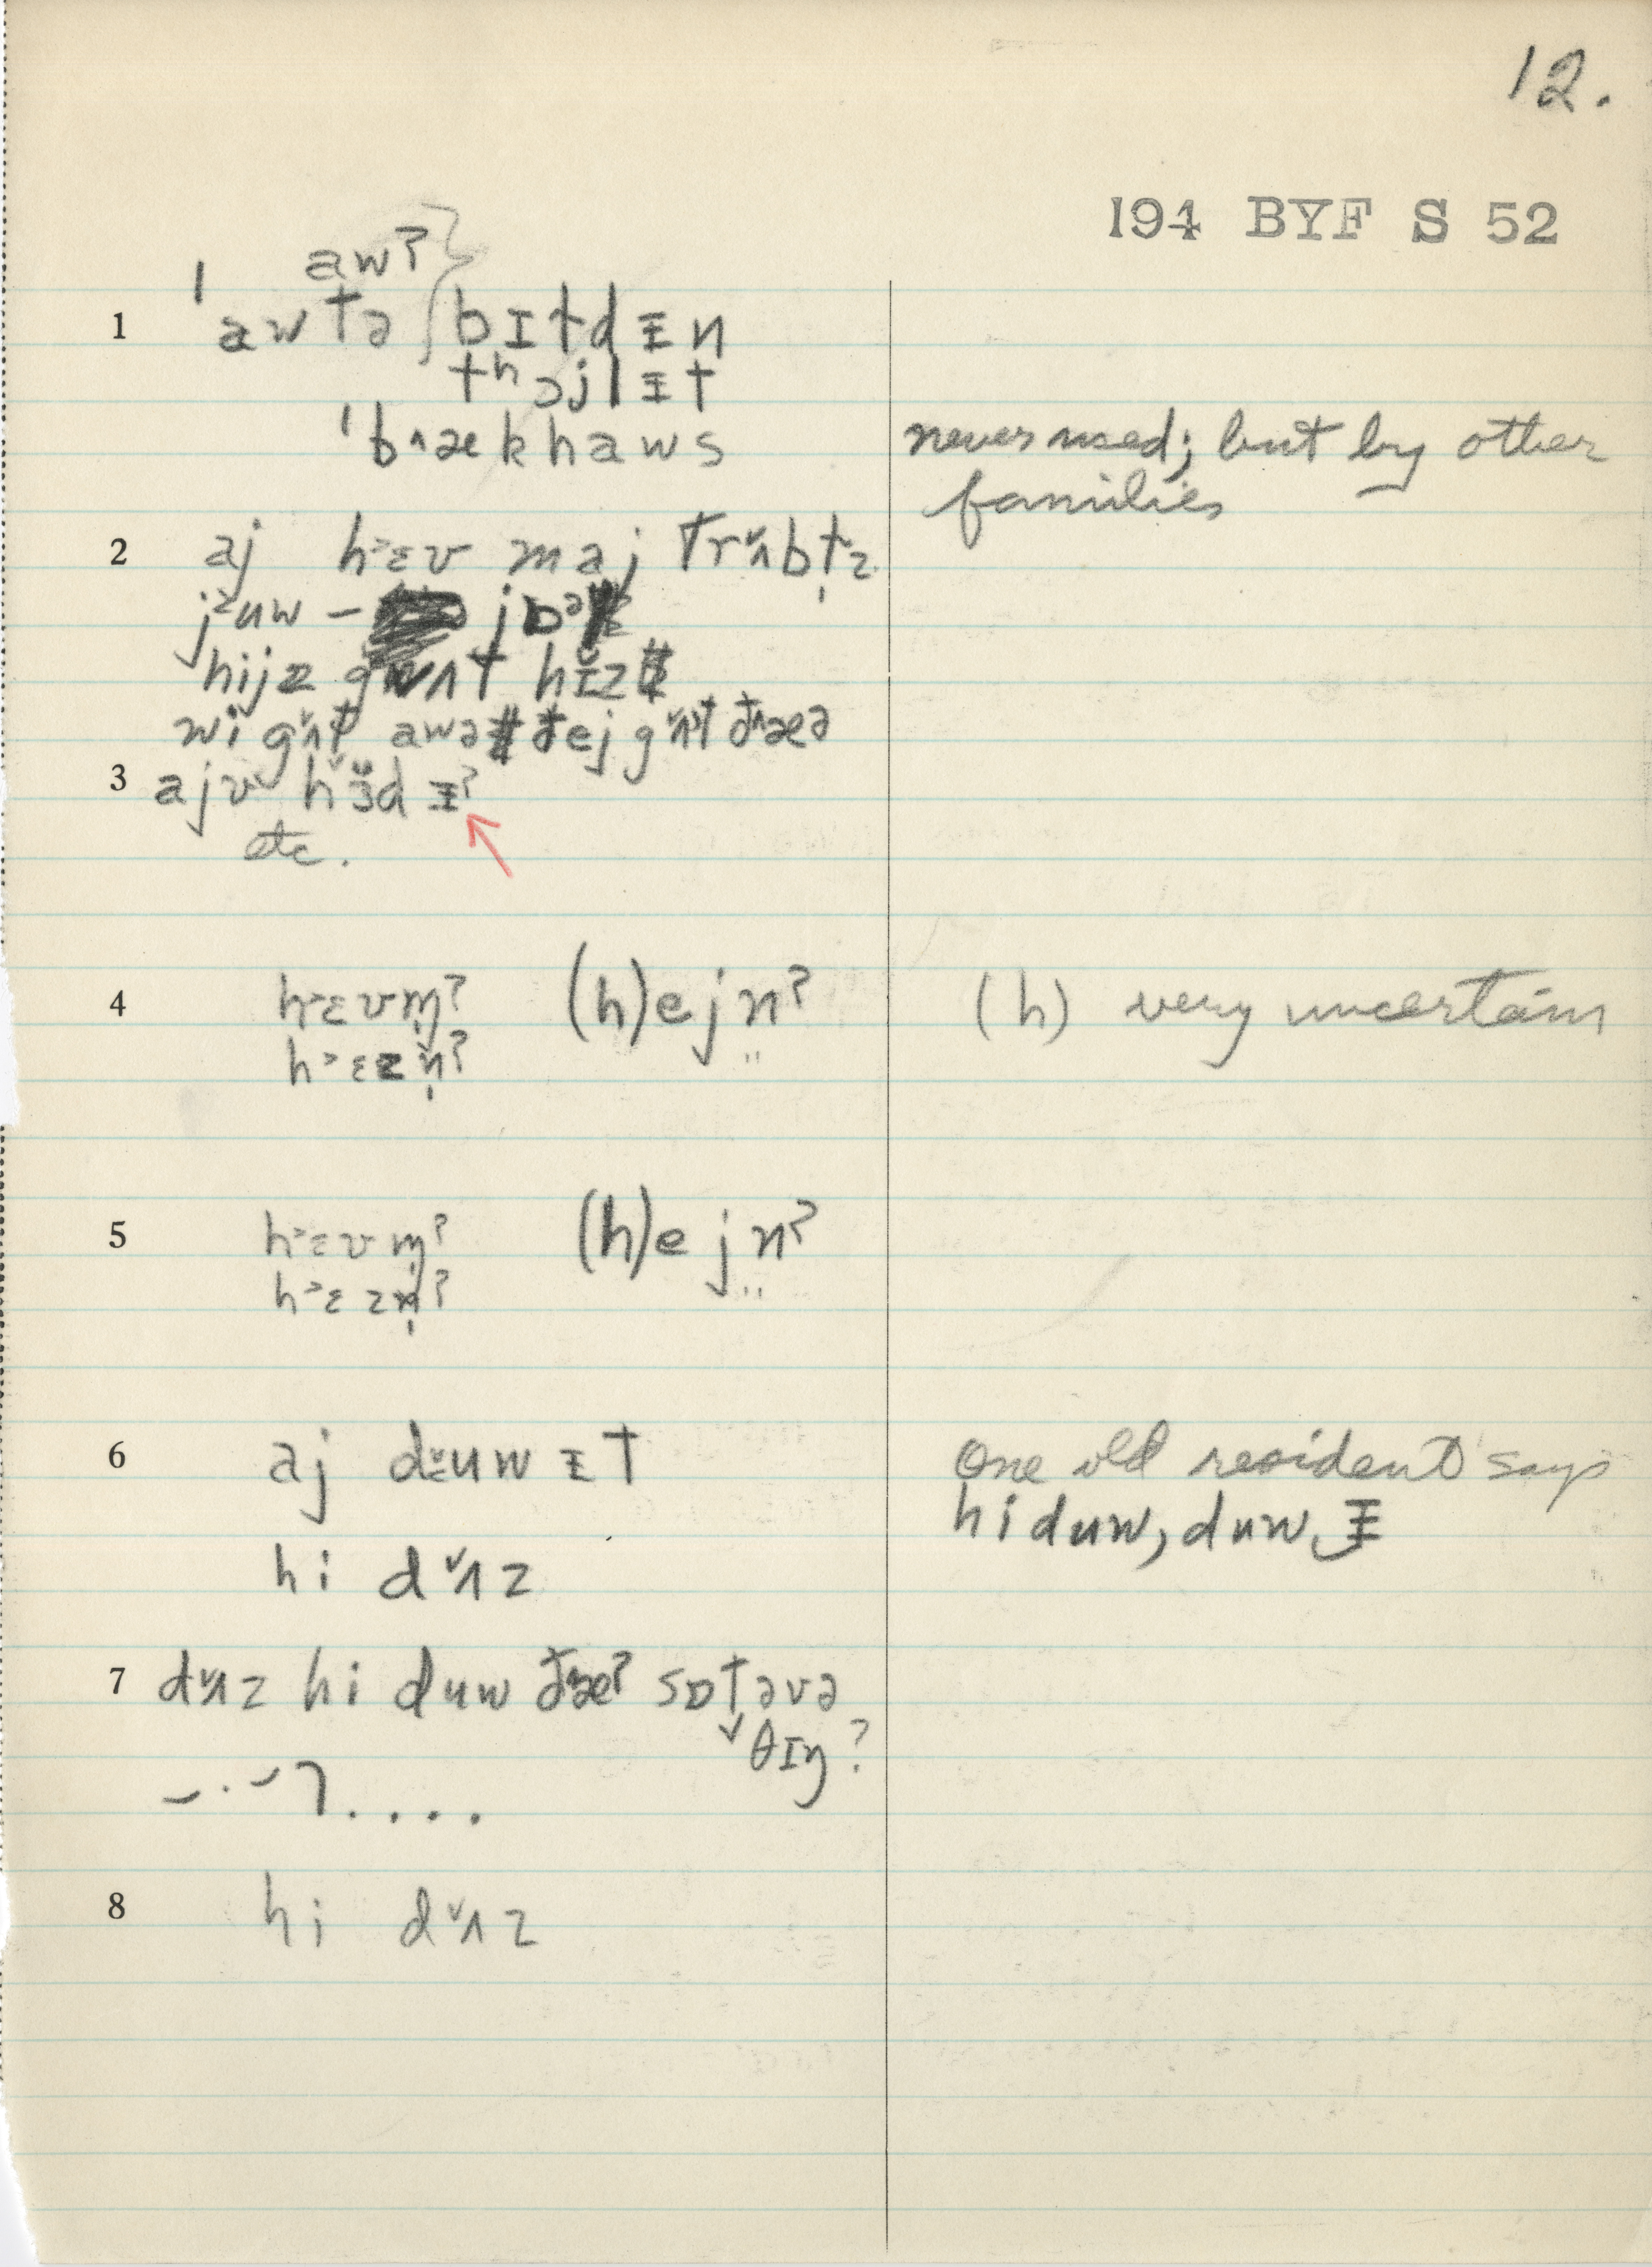 12.
194 BYF S 52
awʔ
1 ˈawtə bɪtdᵻn
tʰɔjlᵻt
ˈb^ækhaws never used; but by other
families
2 aj h>ɛv maj trˇʌbl̩z
j>uw –
hijz gʌt hɪ̌z
wi gˇʌt awə ðej gˇʌt ð^æə
3 ajv hˇɜd ᵻʔ
etc.
4 h>ɛvm̩ʔ (h)ejn̤ʔ (h) very uncertain
h>ɛzn̩ʔ
5 h>ɛvm̩ʔ (h)ejn̤ʔ
h>ɛzn̩ʔ
6 aj dᵻuwᵻt One old resident says
hi duw, duw‿ᵻ
hi dˇʌz
7 dˇʌz hi duw ð^æʔ sɒtəvə
θɪŋ?
8 hi dˇʌz